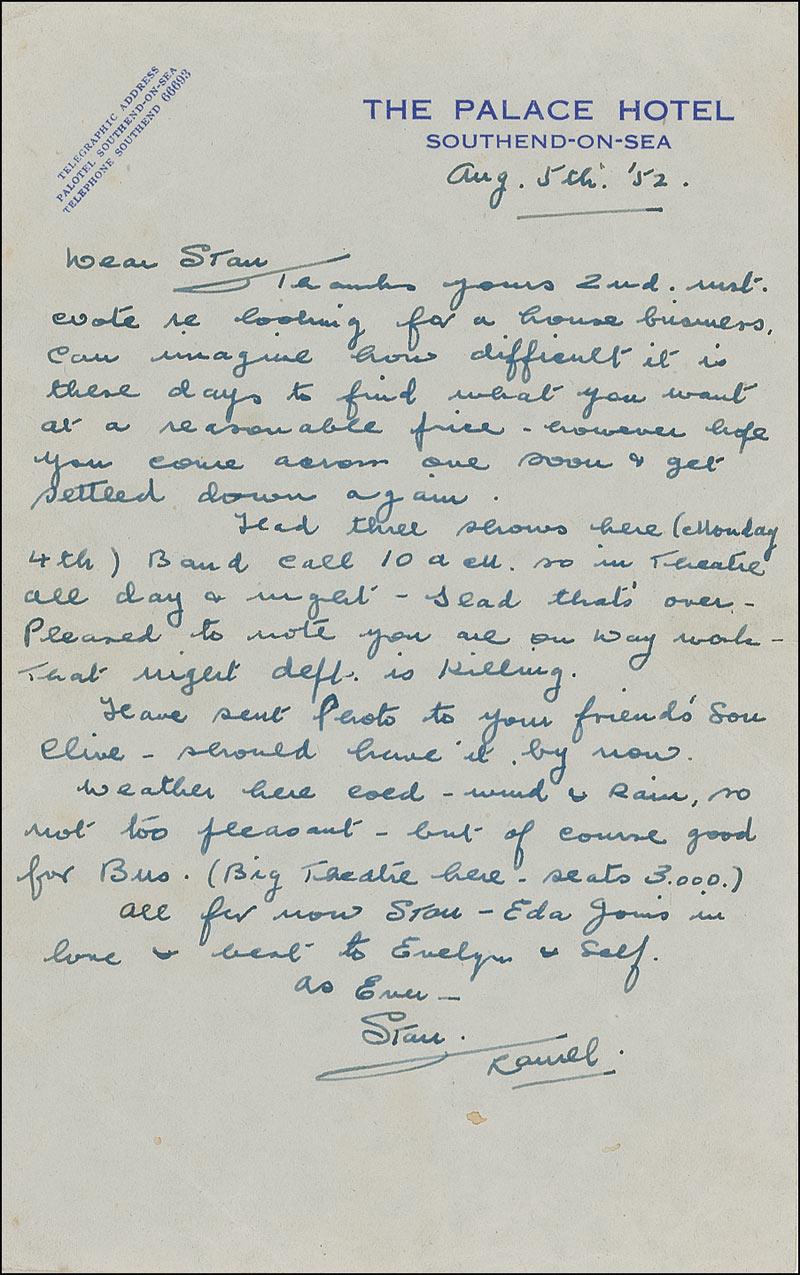 TELEGRAPHIC ADDRESS
PALOTEL SOUTHEND-ON-SEA
TELEPHONE SOUTHEND 66693
THE PALACE HOTEL
SOUTHEND-ON-SEA
Aug. 5th. '52.
Dear Stan
Thanks yours 2nd. inst.
note re looking for a house business,
can imagine how difficult it is
these days to find what you want
at a reasonable price - however hope
you come across one soon & get
settled down again.
Had three shows here (Monday
4th) Band call 10 a.m. so in Theatre
all day & night - Glad that's over -
Pleased to note you are on Day work -
That night deff. is killing.
Have sent Photo to your friends' Son
Clive - should have it by now.
Weather here cold - wind & Rain, so
not too pleasant - but of course good
for Bus. (Big Theatre here - seats 3.000.)
All for now Stan - Eda Joins in
love & best to Evelyn & Self.
As Ever -
Stan.
Laurel.